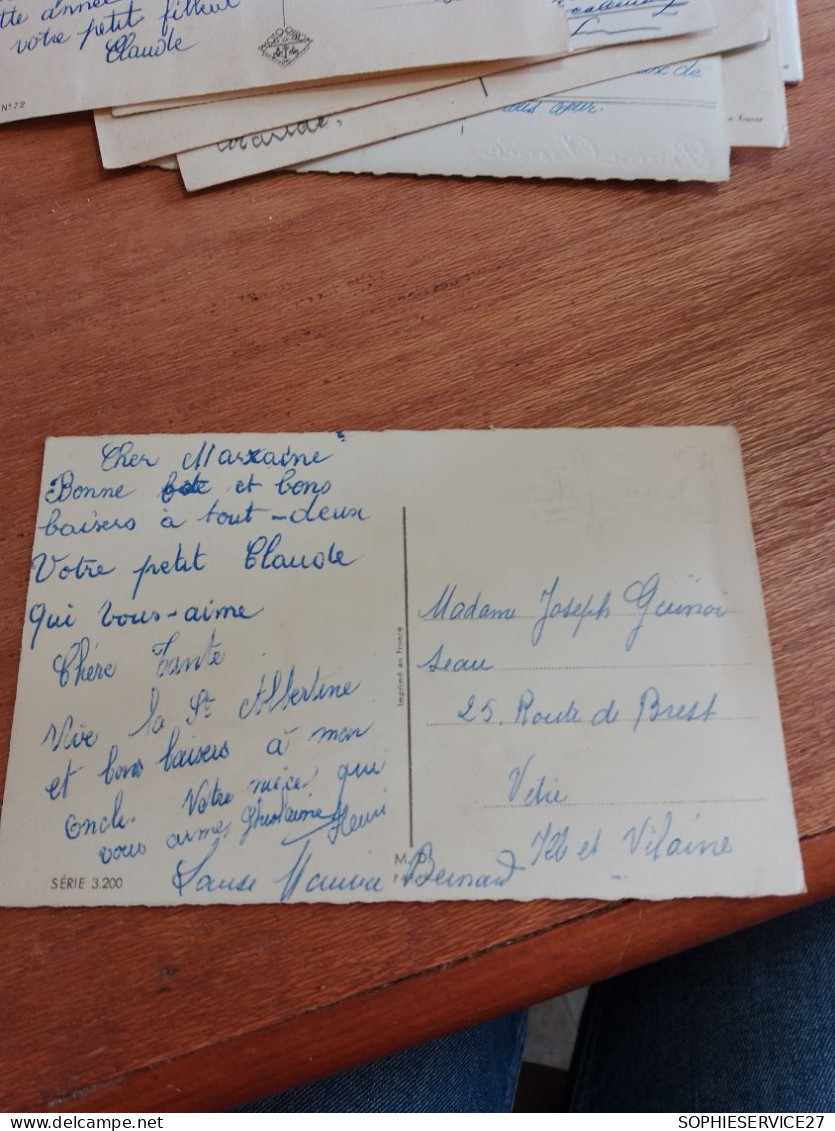 tte année
votre petit filleul
Claude
N° 72
ux de
ous cœur.
en France
Cher Marraine
Bonne fête et bons
baisers à tout-deux
Votre petit Claude
qui vous-aime
Chére Tante
Vive la St Albertine
et bons baisers à mon
oncle. Votre niece qui
vous aime, Ghislaine Henri
Maurice Bernard
SÉRIE 3.200
M. D.
Imprimé en France
Madame Joseph
25. Route de Brest
Ill et Vilaine
SOPHIESERVICE27